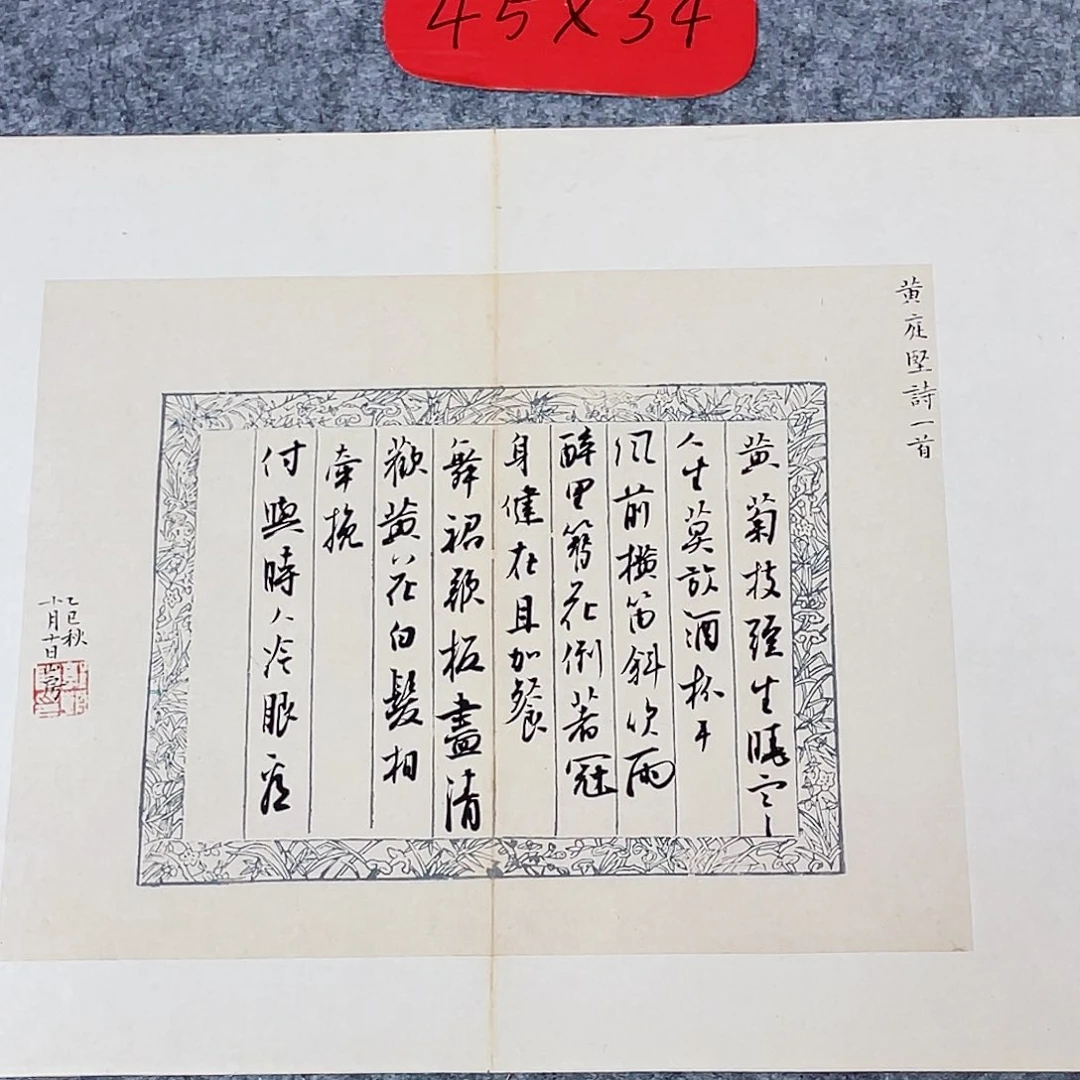 45X34
黄庭堅詩一首
黄菊枝頭生曉寒
人生莫放酒杯干
风前橫笛斜吹雨
醉里簪花倒著冠
身健在且加餐
舞裙歌板盡清
歡黄花白髮相
牽挽
付與時人冷眼看
乙巳秋
十月十日山房